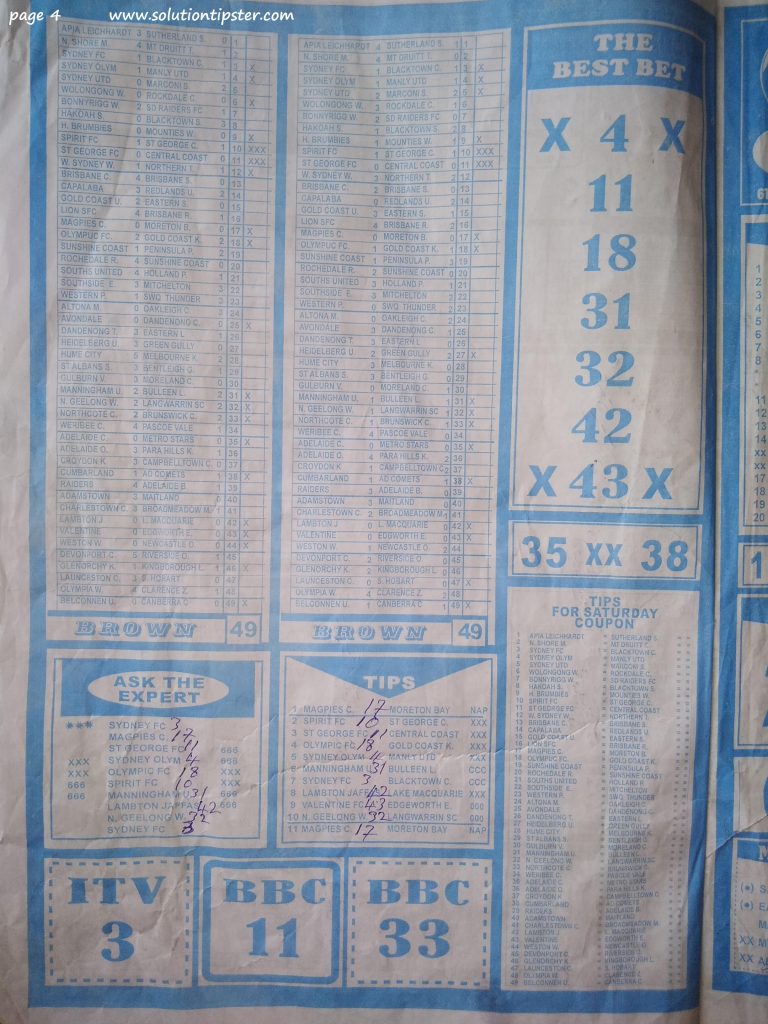 page 4 www.solutiontipster.com
APIA LEICHHARDT 3 SUTHERLAND S. 0 1
N. SHORE M. 4 MT DRUITT T. 0 2
SYDNEY FC 1 BLACKTOWN C. 1 3 X
SYDNEY OLYM 1 MANLY UTD 1 4 X
SYDNEY UTD 0 MARCONI S 2
WOLONGONG W. 0 ROCKDALE C.
BONNYRIGG W. 2 SD RAIDERS FC
HAKOAH S. 0 BLACKTOWN S.
H. BRUMBIES 0 MOUNTIES W. 0 9 X
SPIRIT FC 1 ST GEORGE C. 1 10 XXX
ST GEORGE FC 0 CENTRAL COAST 0 11 XXX
W. SYDNEY W. 1 NORTHERN T. 1 12 X
BRISBANE C. 4 BRISBANE S. 0 13
CAPALABA 3 REDLANDS U. 2 14
GOLD COAST U. 2 EASTERN S. 0 15
LION SFC 4 BRISBANE R. 1
MAGPIES C. 0 MORETON B. 0 17 X
OLYMPUC FC. 2 GOLD COAST K. 2 18 X
SUNSHINE COAST 1 PENINSULA P. 2 19
ROCHEDALE R. 4 SUNSHINE COAST 0 20
SOUTHS UNITED 4 HOLLAND P. 1 21
SOUTHSIDE E. 3 MITCHELTON
WESTERN P. 1 SWQ THUNDER 3 23
ALTONA M. 0 OAKLEIGH C. 3 24
AVONDALE 0 DANDENONG C. 0 25 X
DANDENONG T. 3 EASTERN L.
HEIDELBERG U 3 GREEN GULLY
HUME CITY 5 MELBOURNE K. 2 28
ST ALBANS S 3 BENTLEIGH G.
GULBURN V. 3 MORELAND C. 0 30
MANNINGHAM U. 2 BULLEEN L 2 31 X
N. GEELONG W. 2 LANGWARRIN SC 2 32 X
NORTHCOTE C. 2 BRUNSWICK C. 2 33 X
WERIBEE C. 4 PASCOE VALE 1 34
ADELAIDE C. 0 METRO STARS 0 35 X
ADELAIDE O. 3 PARA HILLS K. 1 36
CROYDON K 3 CAMPBELLTOWN C. 0 37
CUMBARLAND 1 AD COMETS 1 38 X
RAIDERS 4 ADELAIDE B 1 39
ADAMSTOWN 3 MAITLAND 0 40
CHARLESTOWN C. 3 BROADMEADOW M. 1 41
LAMBTON J 0 L. MACQUARIE 0 42 X
VALENTINE 0 EDGWORTH E. 0 43 X
WESTON W 0 NEWCASTLE O. 0 44 X
DEVONPORT C. 5 RIVERSIDE O. 1 45
GLENORCHY K. 1 KINGBOROUGH L. 1 46 X
LAUNCESTON C. 3 S. HOBART 0 47
OLYMPIA W. 4 CLARENCE Z. 1 48
BELCONNEN U. 0 CANBERRA C 0 49 X
BROWN 49
APIA LEICHHARDT 4 SUTHERLAND S. 1 1
N. SHORE M. 4 MT DRUITT C. 0 2
SYDNEY FC 1 BLACKTOWN C. 1 3 X
SYDNEY OLYM 1 MANLY UTD 1 4 X
SYDNEY UTD 2 MARCONI S. 2 5 X
WOLONGONG W. 3 ROCKDALE C. 1 6
BONNYRIGG W 2 SD RAIDERS FC 0 7
HAKOAH S. 1 BLACKTOWN S. 2 8
H. BRUMBIES 1 MOUNTIES W. 1 9 X
SPIRIT FC 1 ST GEORGE C. 1 10 XXX
ST GEORGE FC 0 CENTRAL COAST 0 11 XXX
W. SYDNEY W. 3 NORTHERN T 2 12
BRISBANE C. 2 BRISBANE S. 0 13
CAPALABA 0 REDLANDS U. 2 14
GOLD COAST U. 3 EASTERN S. 1 15
LION SFC 4 BRISBANE R. 2 16
MAGPIES C. 0 MORETON B. 0 17 X
OLYMPUC FC. 1 GOLD COAST K. 1 18 X
SUNSHINE COAST 1 PENINSULA P 3 19
ROCHEDALE R. 2 SUNSHINE COAST 0 20
SOUTHS UNITED 3 HOLLAND P. 1 21
SOUTHSIDE E. 3 MITCHELTON 2 22
WESTERN P. 0 SWQ THUNDER 2 23
ALTONA M. 0 OAKLEIGH C. 2 24
AVONDALE 3 DANDENONG C 1 25
DANDENONG T 3 EASTERN L. 0 26
HEIDELBERG U 2 GREEN GULLY 2 27 X
HUME CITY 3 MELBOURNE K. 0 28
ST ALBANS S. 3 BENTLEIGH G. 0 29
GULBURN V. 0 MORELAND C 1 30
MANNINGHAM U 1 BULLEEN L 1 31 X
N. GEELONG W. 1 LANGWARRIN SC 1 32 X
NORTHCOTE C. 1 BRUNSWICK C 1 33 X
WERIBEE C. 4 PASCOE VALE 0 34
ADELAIDE C. 0 METRO STARS 0 35 X
ADELAIDE O. 4 PARA HILLS K. 2 36
CROYDON K 1 CAMPBELLTOWN C 2 37
CUMBARLAND 1 AD COMETS 1 38 X
RAIDERS 3 ADELAIDE B. 0 39
ADAMSTOWN 3 MAITLAND 0 40
CHARLESTOWN C. 2 BROADMEADOW M. 1 41
LAMBTON J 0 L. MACQUARIE 0 42 X
VALENTINE 0 EDGWORTH E. 0 43 X
WESTON W. 1 NEWCASTLE O. 2 44
DEVONPORT C. 2 RIVERSIDE O 0 45
GLENORCHY K. 2 KINGBOROUGH L. 0 46
LAUNCESTON C. 0 S. HOBART 0 47 X
OLYMPIA W. 4 CLARENCE Z. 2 48
BELCONNEN U. 1 CANBERRA C 1 49 X
BROWN 49
THE
BEST BET
X 4 X
11
18
31
32
42
X 43 X
35 XX 38
ASK THE
EXPERT
*** SYDNEY FC 3
MAGPIES C. 17
ST GEORGE FC 11 666
XXX SYDNEY OLYM 4 666
XXX OLYMPIC FC 18 XXX
666 SPIRIT FC 10 XXX
666 MANNINGHAM U 31 666
LAMBTON JAFFAS 42 666
N. GEELONG W. 32
SYDNEY FC 3
TIPS
1 MAGPIES C. 17 MORETON BAY NAP
2 SPIRIT FC 10 ST GEORGE C. XXX
3 ST GEORGE FC 11 CENTRAL COAST XXX
4 OLYMPIC FC 18 GOLD COAST K. XXX
5 SYDNEY OLYM 4 MANLY UTD XXX
6 MANNINGHAM U 31 BULLEEN L. CCC
7 SYDNEY FC 3 BLACKTOWN C. CCC
8 LAMBTON JAFFA 42 LAKE MACQUARIE XXX
9 VALENTINE FC 43 EDGEWORTH E. 000
10 N. GEELONG W. 32 LANGWARRIN SC 000
11 MAGPIES C. 17 MORETON BAY NAP
ITV
3
BBC
11
BBC
33
TIPS
FOR SATURDAY
COUPON
1 APIA LEICHHARDT * SUTHERLAND S.
2 N. SHORE M. * MT DRUITT C.
3 SYDNEY FC * BLACKTOWN C.
4 SYDNEY OLYM * MANLY UTD
5 SYDNEY UTD * MARCONI S.
6 WOLONGONG W. * ROCKDALE C.
7 BONNYRIGG W. * SD RAIDERS FC
8 HAKOAH S. * BLACKTOWN S.
9 H. BRUMBIES * MOUNTIES W.
10 SPIRIT FC * ST GEORGE C.
11 ST GEORGE FC * CENTRAL COAST
12 W. SYDNEY W. * NORTHERN T.
13 BRISBANE C. * BRISBANE S.
14 CAPALABA * REDLANDS U.
15 GOLD COAST U. * EASTERN S.
16 LION SFC * BRISBANE R.
17 MAGPIES C. * MORETON B.
18 OLYMPUC FC. * GOLD COAST K.
19 SUNSHINE COAST * PENINSULA P.
20 ROCHEDALE R. * SUNSHINE COAST
21 SOUTHS UNITED * HOLLAND P.
22 SOUTHSIDE E. * MITCHELTON
23 WESTERN P. * SWQ THUNDER
24 ALTONA M. * OAKLEIGH C.
25 AVONDALE * DANDENONG C.
26 DANDENONG T. * EASTERN L.
27 HEIDELBERG U * GREEN GULLY
28 HUME CITY * MELBOURNE K.
29 ST ALBANS S. * BENTLEIGH G.
30 GULBURN V. * MORELAND C.
31 MANNINGHAM U. * BULLEEN L
32 N. GEELONG W. * LANGWARRIN SC
33 NORTHCOTE C. * BRUNSWICK C.
34 WERIBEE C. * PASCOE VALE
35 ADELAIDE C. * METRO STARS
36 ADELAIDE O. * PARA HILLS K.
37 CROYDON K * CAMPBELLTOWN C.
38 CUMBARLAND * AD COMETS
39 RAIDERS * ADELAIDE B.
40 ADAMSTOWN * MAITLAND
41 CHARLESTOWN C. * BROADMEADOW M.
42 LAMBTON J * L. MACQUARIE
43 VALENTINE * EDGWORTH E.
44 WESTON W. * NEWCASTLE O.
45 DEVONPORT C. * RIVERSIDE O.
46 GLENORCHY K. * KINGBOROUGH L.
47 LAUNCESTON C. * S. HOBART
48 OLYMPIA W. * CLARENCE Z.
49 BELCONNEN U. * CANBERRA C